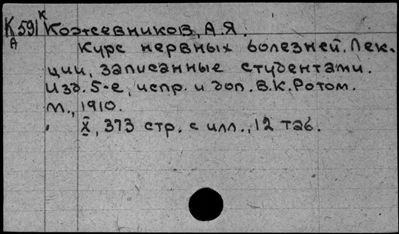 К591 К Кожевников, А.Я.
А Курс нервных болезней. Лек-
ции, записанные студентами.
Изд. 5-е, испр. и доп. В.К. Ротом.
М., 1910.
X, 373 стр. с илл., 12 таб.